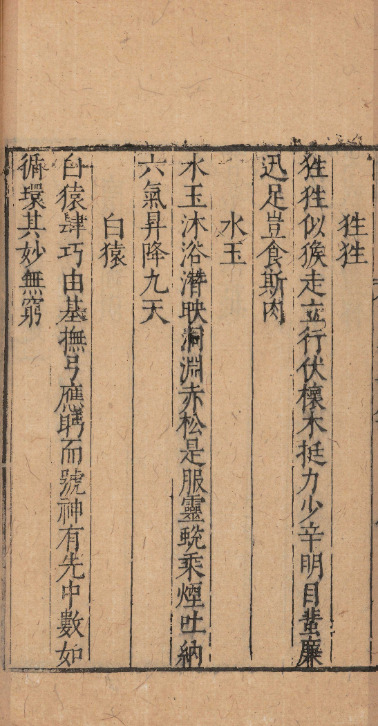 狌狌
狌狌似猴走立行伏櫰木挺力少辛明目蜚廉
迅足豈食斯肉
水玉
水玉沐浴潛映洞淵赤松是服靈蛻乘煙吐納
六氣昇降九天
白猿
白猿肆巧由基撫弓應眄而號神有先中數如
循環其妙無窮